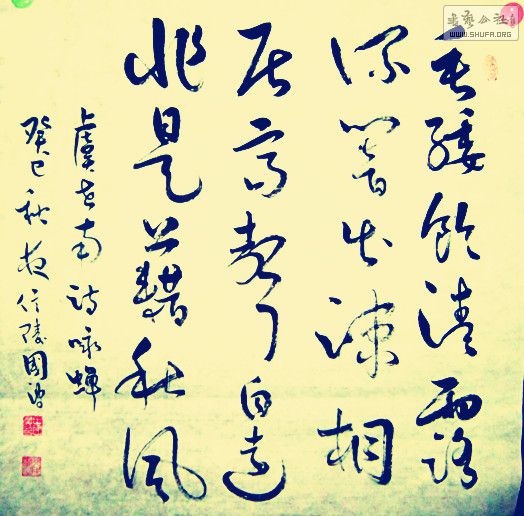 書藝公社
WWW.SHUFA.ORG
垂緌飲清露
流響出疎桐
居高聲自遠
非是藉秋風
虞世南詩咏蟬
癸巳秋夜信陵國